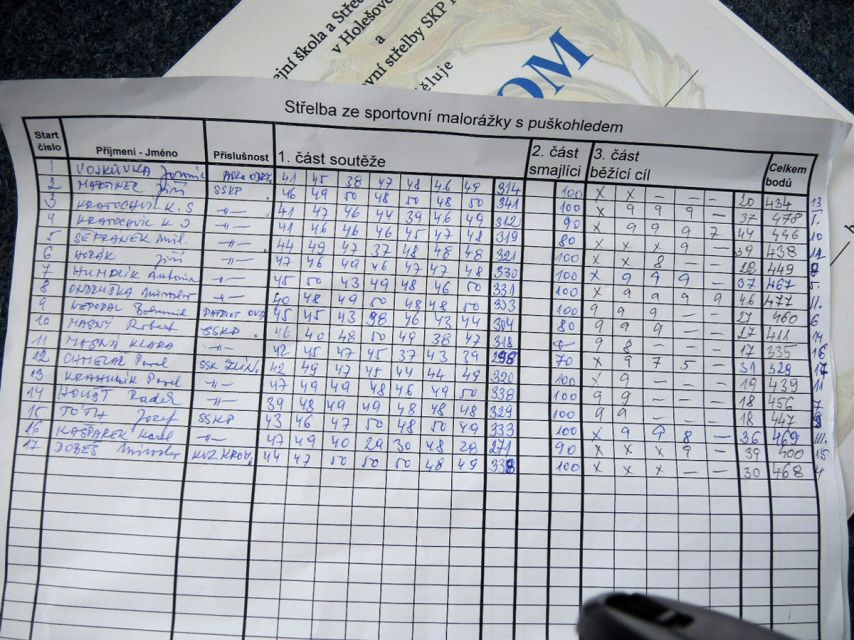 ejní škola a Střed
v Holešově
a
vní střelby SKP
ěluje
OM
Střelba ze sportovní malorážky s puškohledem
Start číslo Příjmení - Jméno Příslušnost 1. část soutěže 2. část smajlící 3. část běžící cíl Celkem bodů
1 VOJKŮVKA 41 45 38 47 48 46 49 314 100 X X - - - 20 434 13
2 MARTINEC Jiří SSKP 46 49 50 48 50 48 50 341 100 X 9 9 9 - 37 478 I.
3 KRATOCHVÍL K. S -"- 41 47 46 44 39 46 49 312 90 X 9 9 9 7 44 446 10
4 KRATOCHVÍL K J -"- 41 46 46 46 45 47 48 319 80 X X X 9 - 39 438 12
5 SEFRANEK Mil. -"- 44 49 47 37 48 48 48 321 100 X X 8 - - 28 449 8
6 HORÁK Jiří -"- 47 46 49 46 47 47 48 330 100 X 9 9 9 - 37 467 5.
7 HUMPLÍK Antonín -"- 45 50 43 49 48 46 50 331 100 X 9 9 9 9 46 477 II.
8 ONDRUŠKA Miroslav -"- 40 48 49 50 48 48 50 333 100 9 9 9 - - 27 460 6
9 NEDOPAL Bohumil PATRIOT OVA 45 45 43 38 46 43 44 304 80 9 9 9 - - 27 411 14
10 MASNÝ Robert SSKP 46 40 48 50 49 38 47 318 9 8 - - - 17 335 16
11 MASNÝ KLARA -"- 42 45 47 45 37 43 39 298 70 X 9 7 5 - 31 329 17
12 CHMELAŘ Pavel SSK ZLÍN. 42 49 47 45 44 44 49 320 100 X 9 - - - 19 439 11
13 Pavel -"- 47 49 49 48 46 49 50 338 100 9 9 - - - 18 456 7
14 HOUŠŤ Radek -"- 39 48 49 49 48 48 48 329 100 9 9 - - - 18 447 9
15 TOTH Jozef SSKP 43 46 47 50 48 50 49 333 100 X 9 9 8 - 36 469 III.
16 KAŠPAREK Karel -"- 47 49 40 29 30 48 28 271 90 X X X 9 - 39 400 15
17 DOBEŠ Miroslav KVZ KROM. 44 47 50 50 50 48 49 338 100 X X X - - 30 468 4